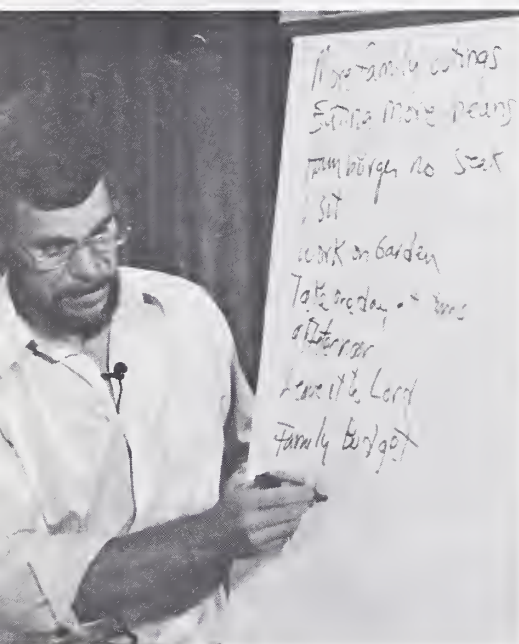 More family outings
Eating More beans
Hamburger no Steak
Visit
work on Garden
Take one day at time
Leave it to Lord
Family Budget